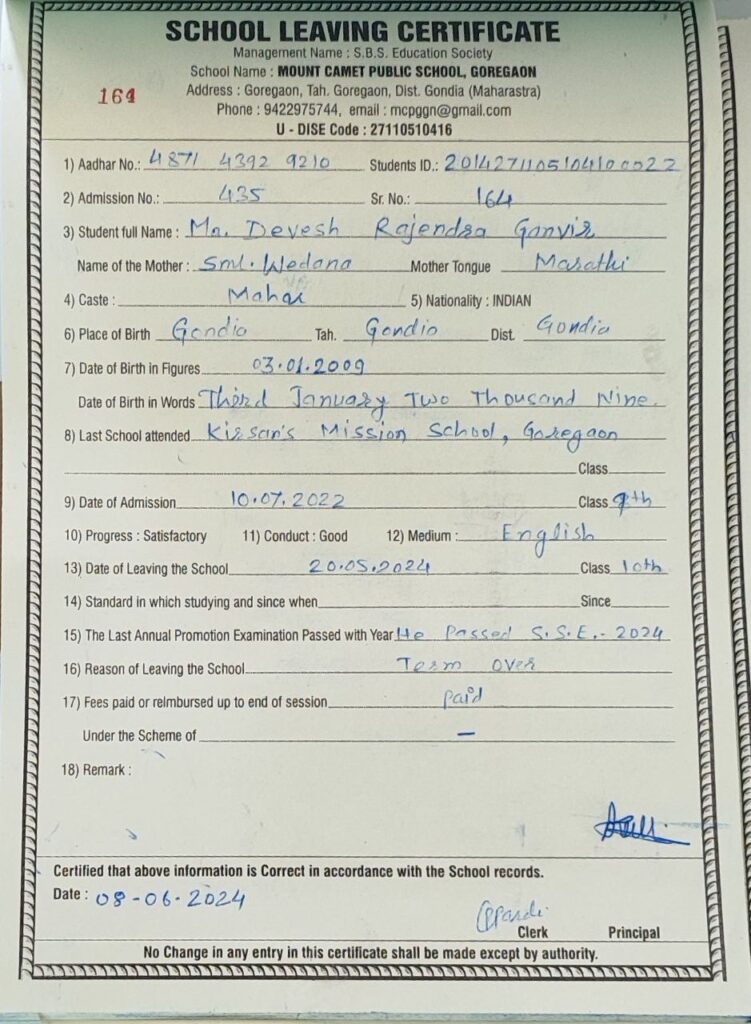 SCHOOL LEAVING CERTIFICATE
Management Name : S.B.S. Education Society
School Name : MOUNT CAMET PUBLIC SCHOOL, GOREGAON
164
Address : Goregaon, Tah. Goregaon, Dist. Gondia (Maharastra)
Phone : 9422975744, email : mcpggn@gmail.com
U - DISE Code : 27110510416
1) Aadhar No.: 4871 4392 9210 Students ID.: 2014271105104100022
2) Admission No.: 435 Sr. No.: 164
3) Student full Name : Mr. Devesh Rajendra Ganvir
Name of the Mother : Smt. Wedana Mother Tongue Marathi
4) Caste : Mahar 5) Nationality : INDIAN
6) Place of Birth Gondia Tah. Gondia Dist. Gondia
7) Date of Birth in Figures 03.01.2009
Date of Birth in Words Third January Two Thousand Nine.
8) Last School attended Kirsan's Mission School, Goregaon
Class
9) Date of Admission 10.07.2022 Class 9th
10) Progress : Satisfactory 11) Conduct : Good 12) Medium : English
13) Date of Leaving the School 20.05.2024 Class 10th
14) Standard in which studying and since when Since
15) The Last Annual Promotion Examination Passed with Year He Passed S.S.E.- 2024
16) Reason of Leaving the School Term over
17) Fees paid or reimbursed up to end of session paid
Under the Scheme of —
18) Remark :
Certified that above information is Correct in accordance with the School records.
Date : 08-06-2024
Clerk Principal
No Change in any entry in this certificate shall be made except by authority.